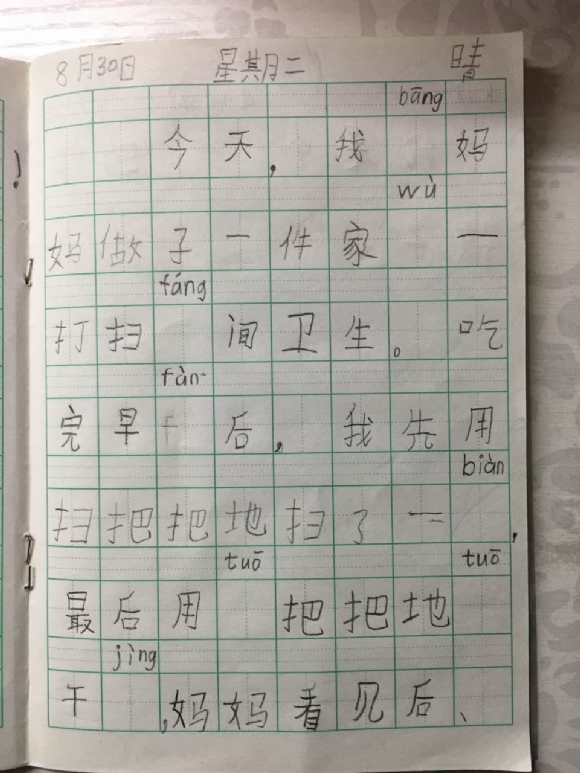 8月30日 星期二 晴
bāng
今天,我 妈
wù
妈做子一件家 一
fáng
打扫 间卫生。吃
fàn
完早 后,我先用
biàn
扫把把地扫了一 ,
tuō tuō
最后用 把把地
jìng
干 ,妈妈看见后、
!